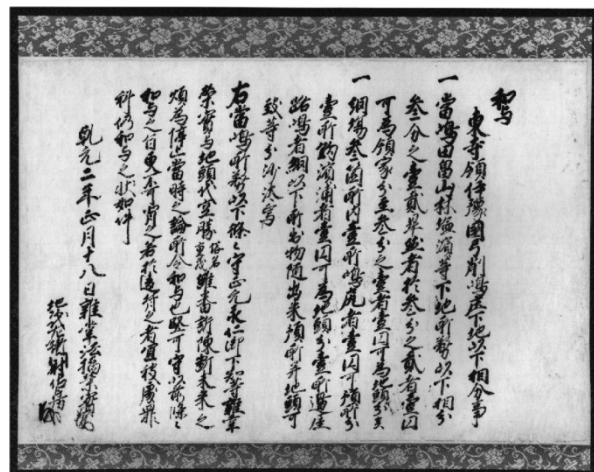 和与
東寺領伊豫國弓削嶋庄下地以下相分事
一 當嶋田畠山林塩濱等下地所務以下相分
叁分之壹貳畢然者於叁分之貳者壹円
可為領家分至叁分之壹者壹円可為地頭分矣
一 網場叁箇所内壹所嶋尻者壹円可預所分
壹所釣濱浦者壹円可為地頭分壹所邊屋
路嶋者網以下所出物随出来預所并地頭可
致等分沙汰焉
右當嶋所務以下條々守正元永仁御下知等雑掌
榮實与地頭代空勝 雖番訴陳断未来之
煩為停止當時之論所令和与也堅可守此條々
和与之上者更不可背之若於違背之者宜被處罪
科仍和与之状如件
乾元二年正月十八日 雑掌法橋榮實